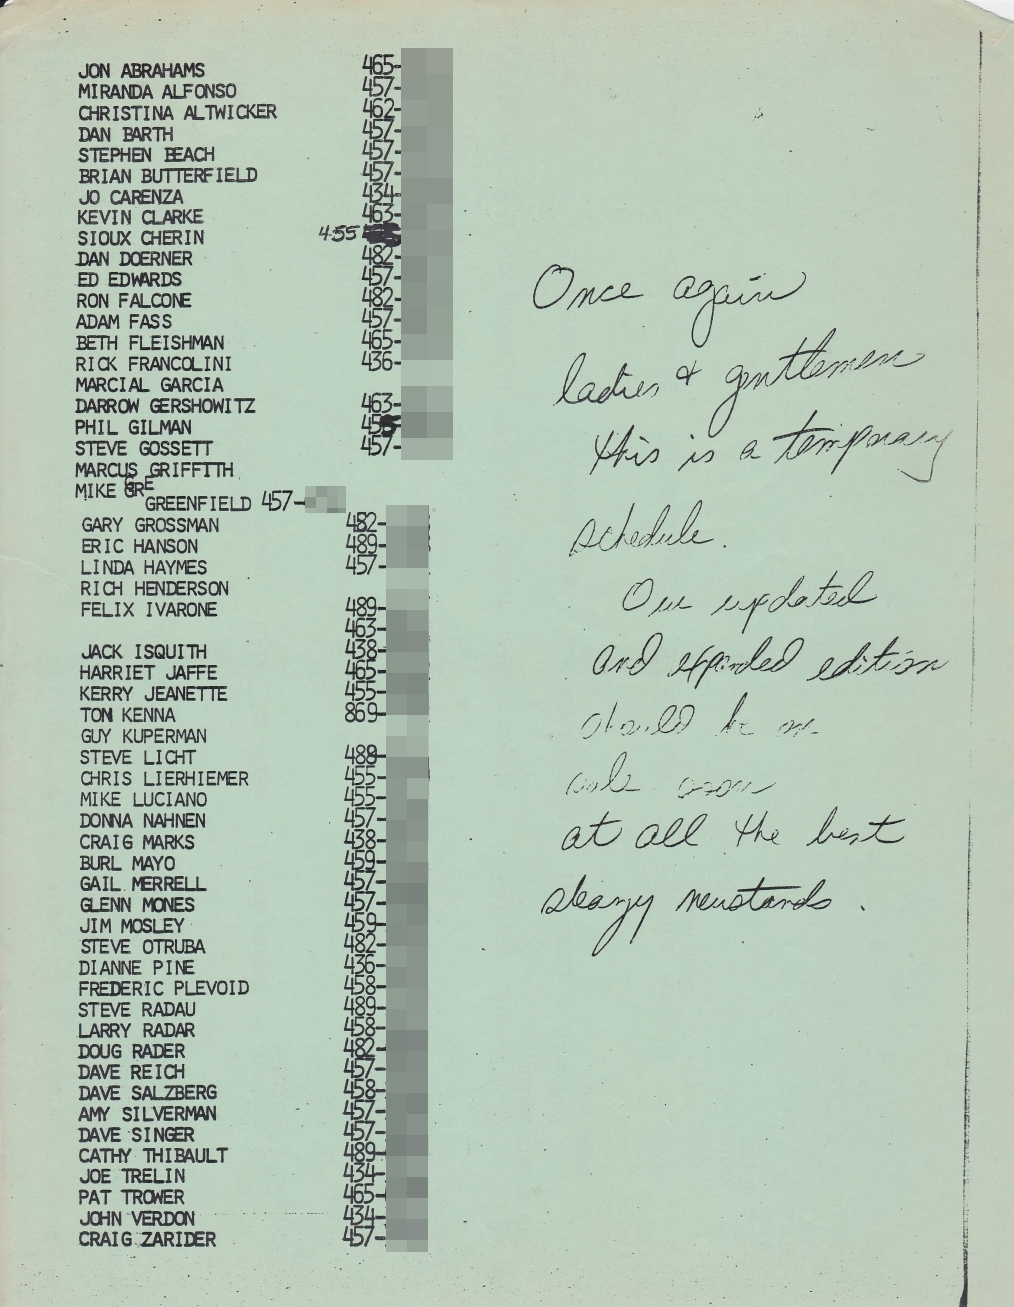 JON ABRAHAMS 465-
MIRANDA ALFONSO 457-
CHRISTINA ALTWICKER 462-
DAN BARTH 457-
STEPHEN BEACH 457-
BRIAN BUTTERFIELD 457-
JO CARENZA 434-
KEVIN CLARKE 463-
SIOUX CHERIN 455
DAN DOERNER 482-
ED EDWARDS 457-
RON FALCONE 482-
ADAM FASS 457-
BETH FLEISHMAN 465-
RICK FRANCOLINI 436-
MARCIAL GARCIA
DARROW GERSHOWITZ 463-
PHIL GILMAN 455
STEVE GOSSETT 457-
MARCUS GRIFFITH
MIKE GRE
GREENFIELD 457-
GARY GROSSMAN 482-
ERIC HANSON 489-
LINDA HAYMES 457-
RICH HENDERSON
FELIX IVARONE 489-
463-
JACK ISQUITH 438-
HARRIET JAFFE 465-
KERRY JEANETTE 455-
TOM KENNA 869-
GUY KUPERMAN
STEVE LICHT 489-
CHRIS LIERHIEMER 455-
MIKE LUCIANO 455-
DONNA NAHNEN 457-
CRAIG MARKS 438-
BURL MAYO 459-
GAIL MERRELL 457-
GLENN MONES 457-
JIM MOSLEY 459-
STEVE OTRUBA 482-
DIANNE PINE 436-
FREDERIC PLEVOID 458-
STEVE RADAU 489-
LARRY RADAR 458-
DOUG RADER 482-
DAVE REICH 457-
DAVE SALZBERG 458-
AMY SILVERMAN 457-
DAVE SINGER 457-
CATHY THIBAULT 489-
JOE TRELIN 434-
PAT TROWER 465-
JOHN VERDON 434-
CRAIG ZARIDER 457-
Once again
ladies & gentlemen
this is a temporary
schedule.
Our updated
and expanded edition
should be on
sale soon
at all the best
sleazy newstands.